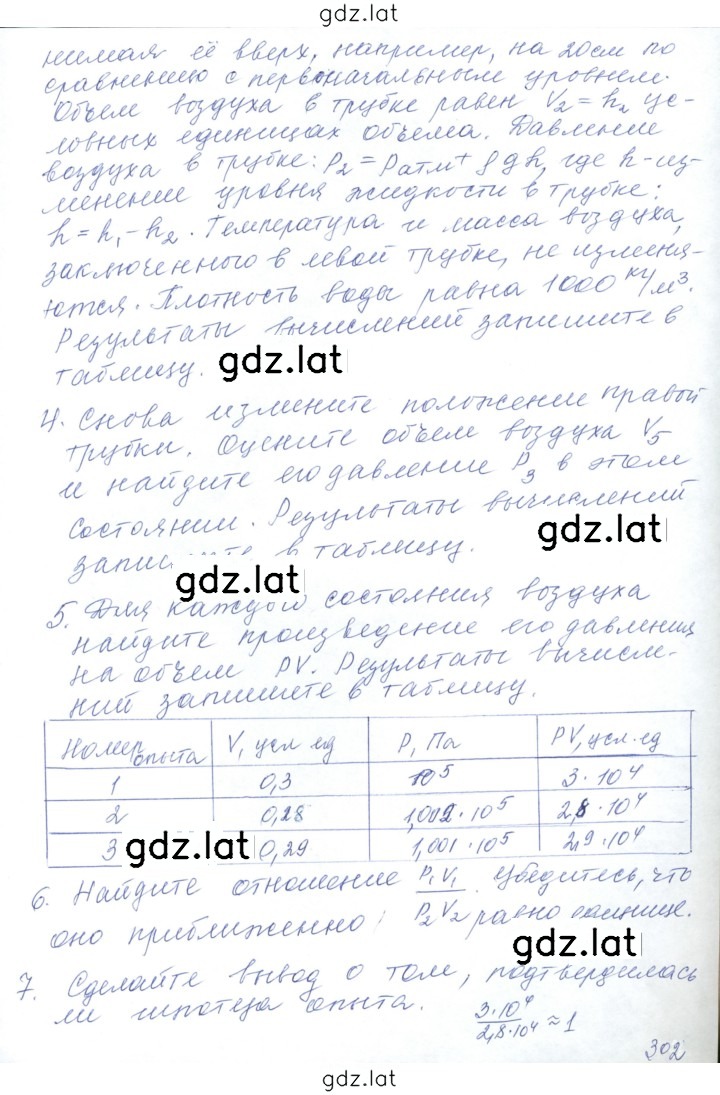 gdz.lat
нимая её вверх, например, на 20см по
сравнению с первоначальным уровнем.
Объем воздуха в трубке равен V₂ = h₂ ус-
ловных единицах объема. Давление
воздуха в трубке: P₂ = Pатм + ρgh, где h - из-
менение уровня жидкости в трубке:
h = h₁ - h₂. Температура и масса воздуха,
заключенного в левой трубке, не изменя-
ются. Плотность воды равна 1000 кг/м³.
Результаты вычислений запишите в
таблицу.
gdz.lat
4. Снова измените положение правой
трубки. Оцените объем воздуха V₅
и найдите его давление P₃ в этом
состоянии. Результаты вычислений
gdz.lat
в таблицу.
gdz.lat
5. Для каждого состояния воздуха
найдите произведение его давления
на объем PV. Результаты вычисле-
ний запишите в таблицу.
Номер опыта V, усл ед P, Па PV, усл. ед
1 0,3 10⁵ 3 · 10⁴
2 0,28 1,002 · 10⁵ 2,8 · 10⁴
3 0,29 1,001 · 10⁵ 2,9 · 10⁴
gdz.lat
6. Найдите отношение P₁V₁/P₂V₂. Убедитесь, что
оно приближенно равно единице.
gdz.lat
7. Сделайте вывод о том, подтвердилась
ли гипотеза опыта. 3·10⁴/2,8·10⁴ ≈ 1
302
gdz.lat